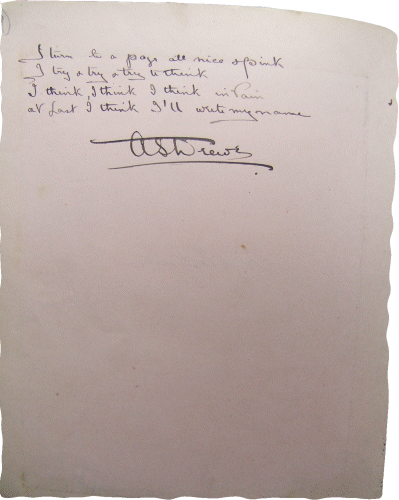 I turn to a page all nice & pink
I try & try & try to think
I think, I think I think in Vain
at Last I think I'll write my name
A S Drewe